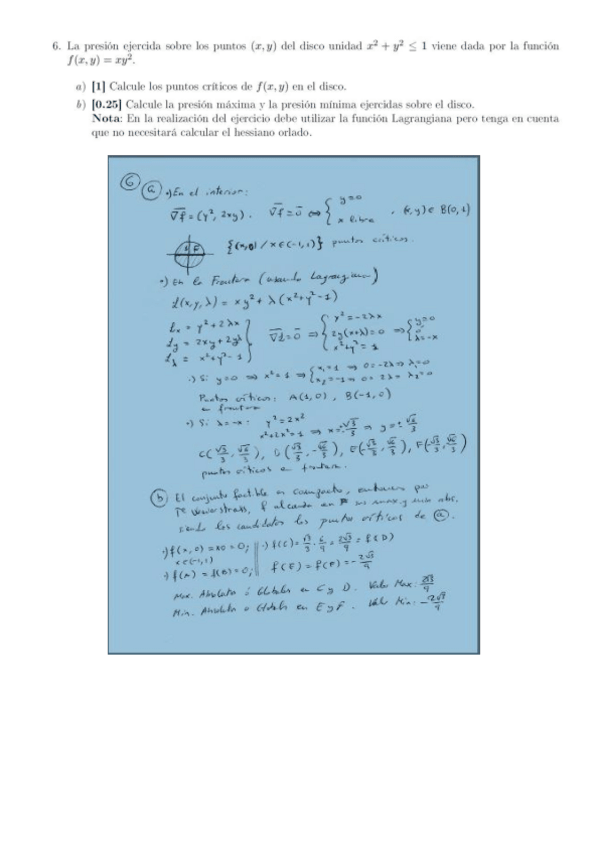 6. La presión ejercida sobre los puntos (x, y) del disco unidad x² + y² ≤ 1 viene dada por la función
f(x, y) = xy².
a) [1] Calcule los puntos críticos de f(x, y) en el disco.
b) [0.25] Calcule la presión máxima y la presión mínima ejercidas sobre el disco.
Nota: En la realización del ejercicio debe utilizar la función Lagrangiana pero tenga en cuenta
que no necesitará calcular el hessiano orlado.
6 a) •) En el interior:
∇f = (y², 2xy). ∇f = 0 ⇔ { y=0 x libre , (x,y) ∈ B(0,1)
{(x,0) / x∈(-1,1)} puntos críticos.
•) En la Frontera (usando Lagrangiano)
L(x,y,λ) = xy² + λ(x²+y²-1)
Lx = y² + 2λx
Ly = 2xy + 2yλ
Lλ = x²+y²-1
∇L = 0 ⇒ { y² = -2λx 2y(x+λ) = 0 x²+y² = 1 ⇒ { y=0 ó λ=-x
•) Si y=0 ⇒ x²=1 ⇒ { x₁=1 ⇒ 0=-2λ ⇒ λ₁=0 x₂=-1 ⇒ 0=2λ λ₂=0
Puntos críticos: A(1,0), B(-1,0)
en frontera
•) Si λ=-x: y²=2x²
x²+2x²=1 ⇒ x=±√3/3 ⇒ y=±√6/3
C(√3/3, √6/3), D(√3/3, -√6/3), E(-√3/3, √6/3), F(-√3/3, -√6/3)
puntos críticos en frontera.
b) El conjunto factible es compacto, entonces por
Tª Weierstrass, f alcanza en su max. y min abs,
siendo los candidatos los puntos críticos de a).
•) f(x,0) = x0 = 0; •) f(C) = √3/3 · 6/9 = 2√3/9 = f(D)
x∈(-1,1)
•) f(A) = f(B) = 0; f(E) = f(F) = -2√3/9
Max. Absolutos ó Globales en C y D. Valor Max: 2√3/9
Min. Absolutos o Globales en E y F. Valor Min: -2√3/9